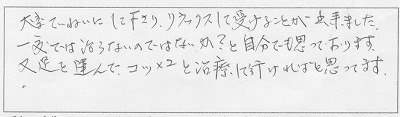 大変ていねいにして下さり、リラックスして受けることが出来ました。
一度では治らないのではないか?と自分でも思っております。
又足を運んで、コツ×2と治療して行ければと思ってます。